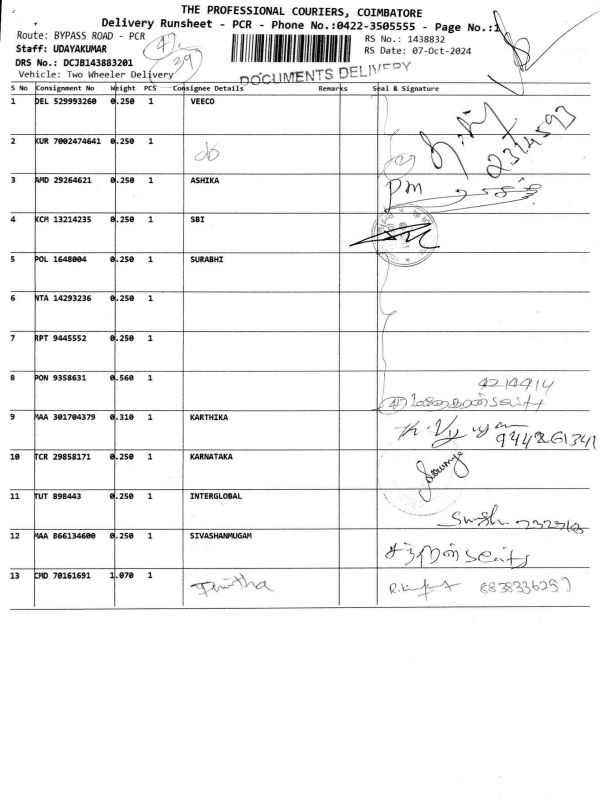 THE PROFESSIONAL COURIERS, COIMBATORE
Delivery Runsheet - PCR - Phone No.:0422-3505555 - Page No.:1
Route: BYPASS ROAD - PCR
RS No.: 1438832
Staff: UDAYAKUMAR
RS Date: 07-Oct-2024
DRS No.: DCJB143883201
39
Vehicle: Two Wheeler Delivery
DOCUMENTS DELIVERY
S No Consignment No Weight PCS Consignee Details Remarks Seal & Signature
1 DEL 529993260 0.250 1 VEECO
2374593
2 KUR 7002474641 0.250 1
3 AMD 29264621 0.250 1 ASHIKA
pm
4 KCM 13214235 0.250 1 SBI
5 POL 1648004 0.250 1 SURABHI
6 NTA 14293236 0.250 1
7 RPT 9445552 0.250 1
8 PON 9358631 0.560 1
4214914
9 MAA 301704379 0.310 1 KARTHIKA
10 TCR 29858171 0.250 1 KARNATAKA
Sowmya
11 TUT 898443 0.250 1 INTERGLOBAL
12 MAA 866134600 0.250 1 SIVASHANMUGAM
13 CMD 70161691 1.070 1